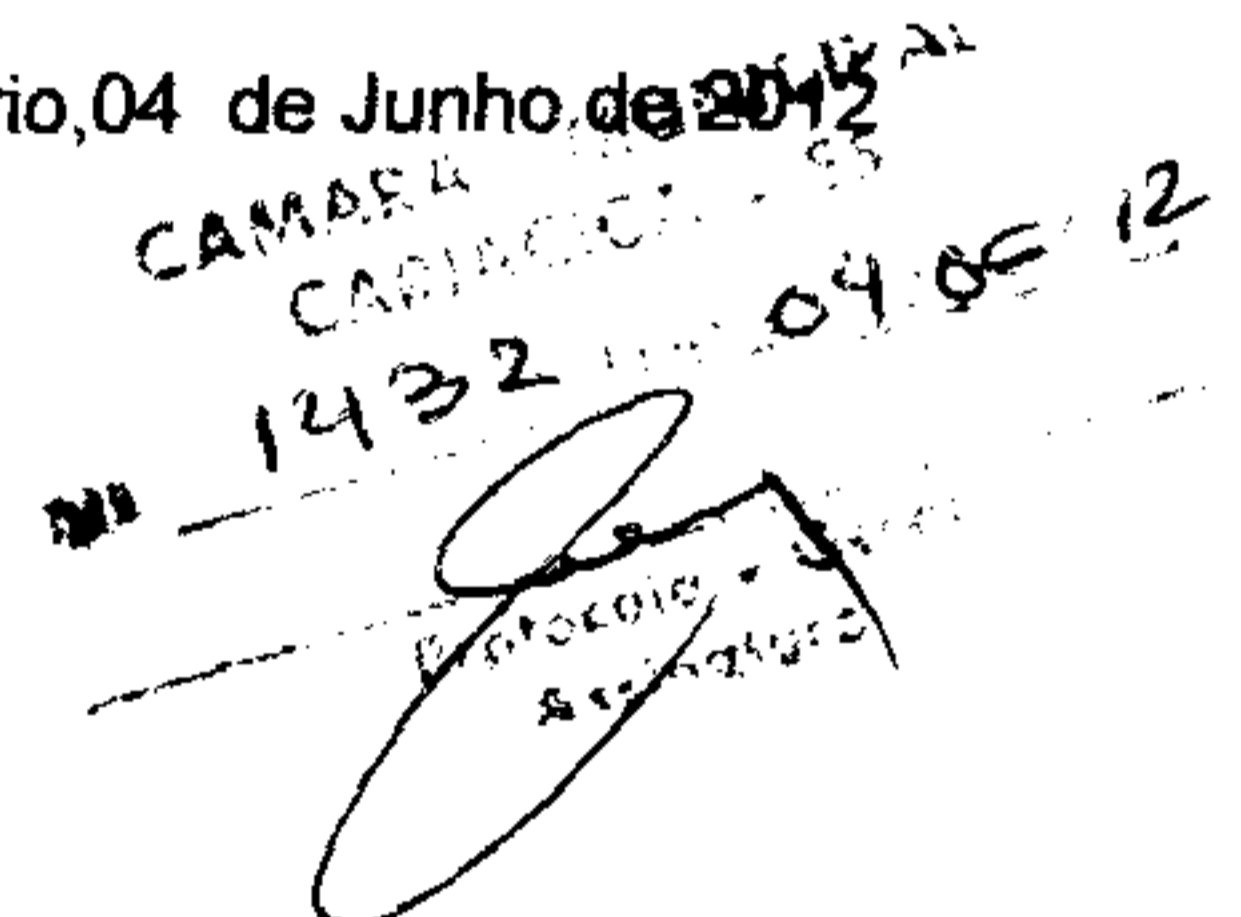 io,04 de Junho de 2012
CAMARA
CARIACICA - ES
1432 04 06 12
Protocolo
Assinatura